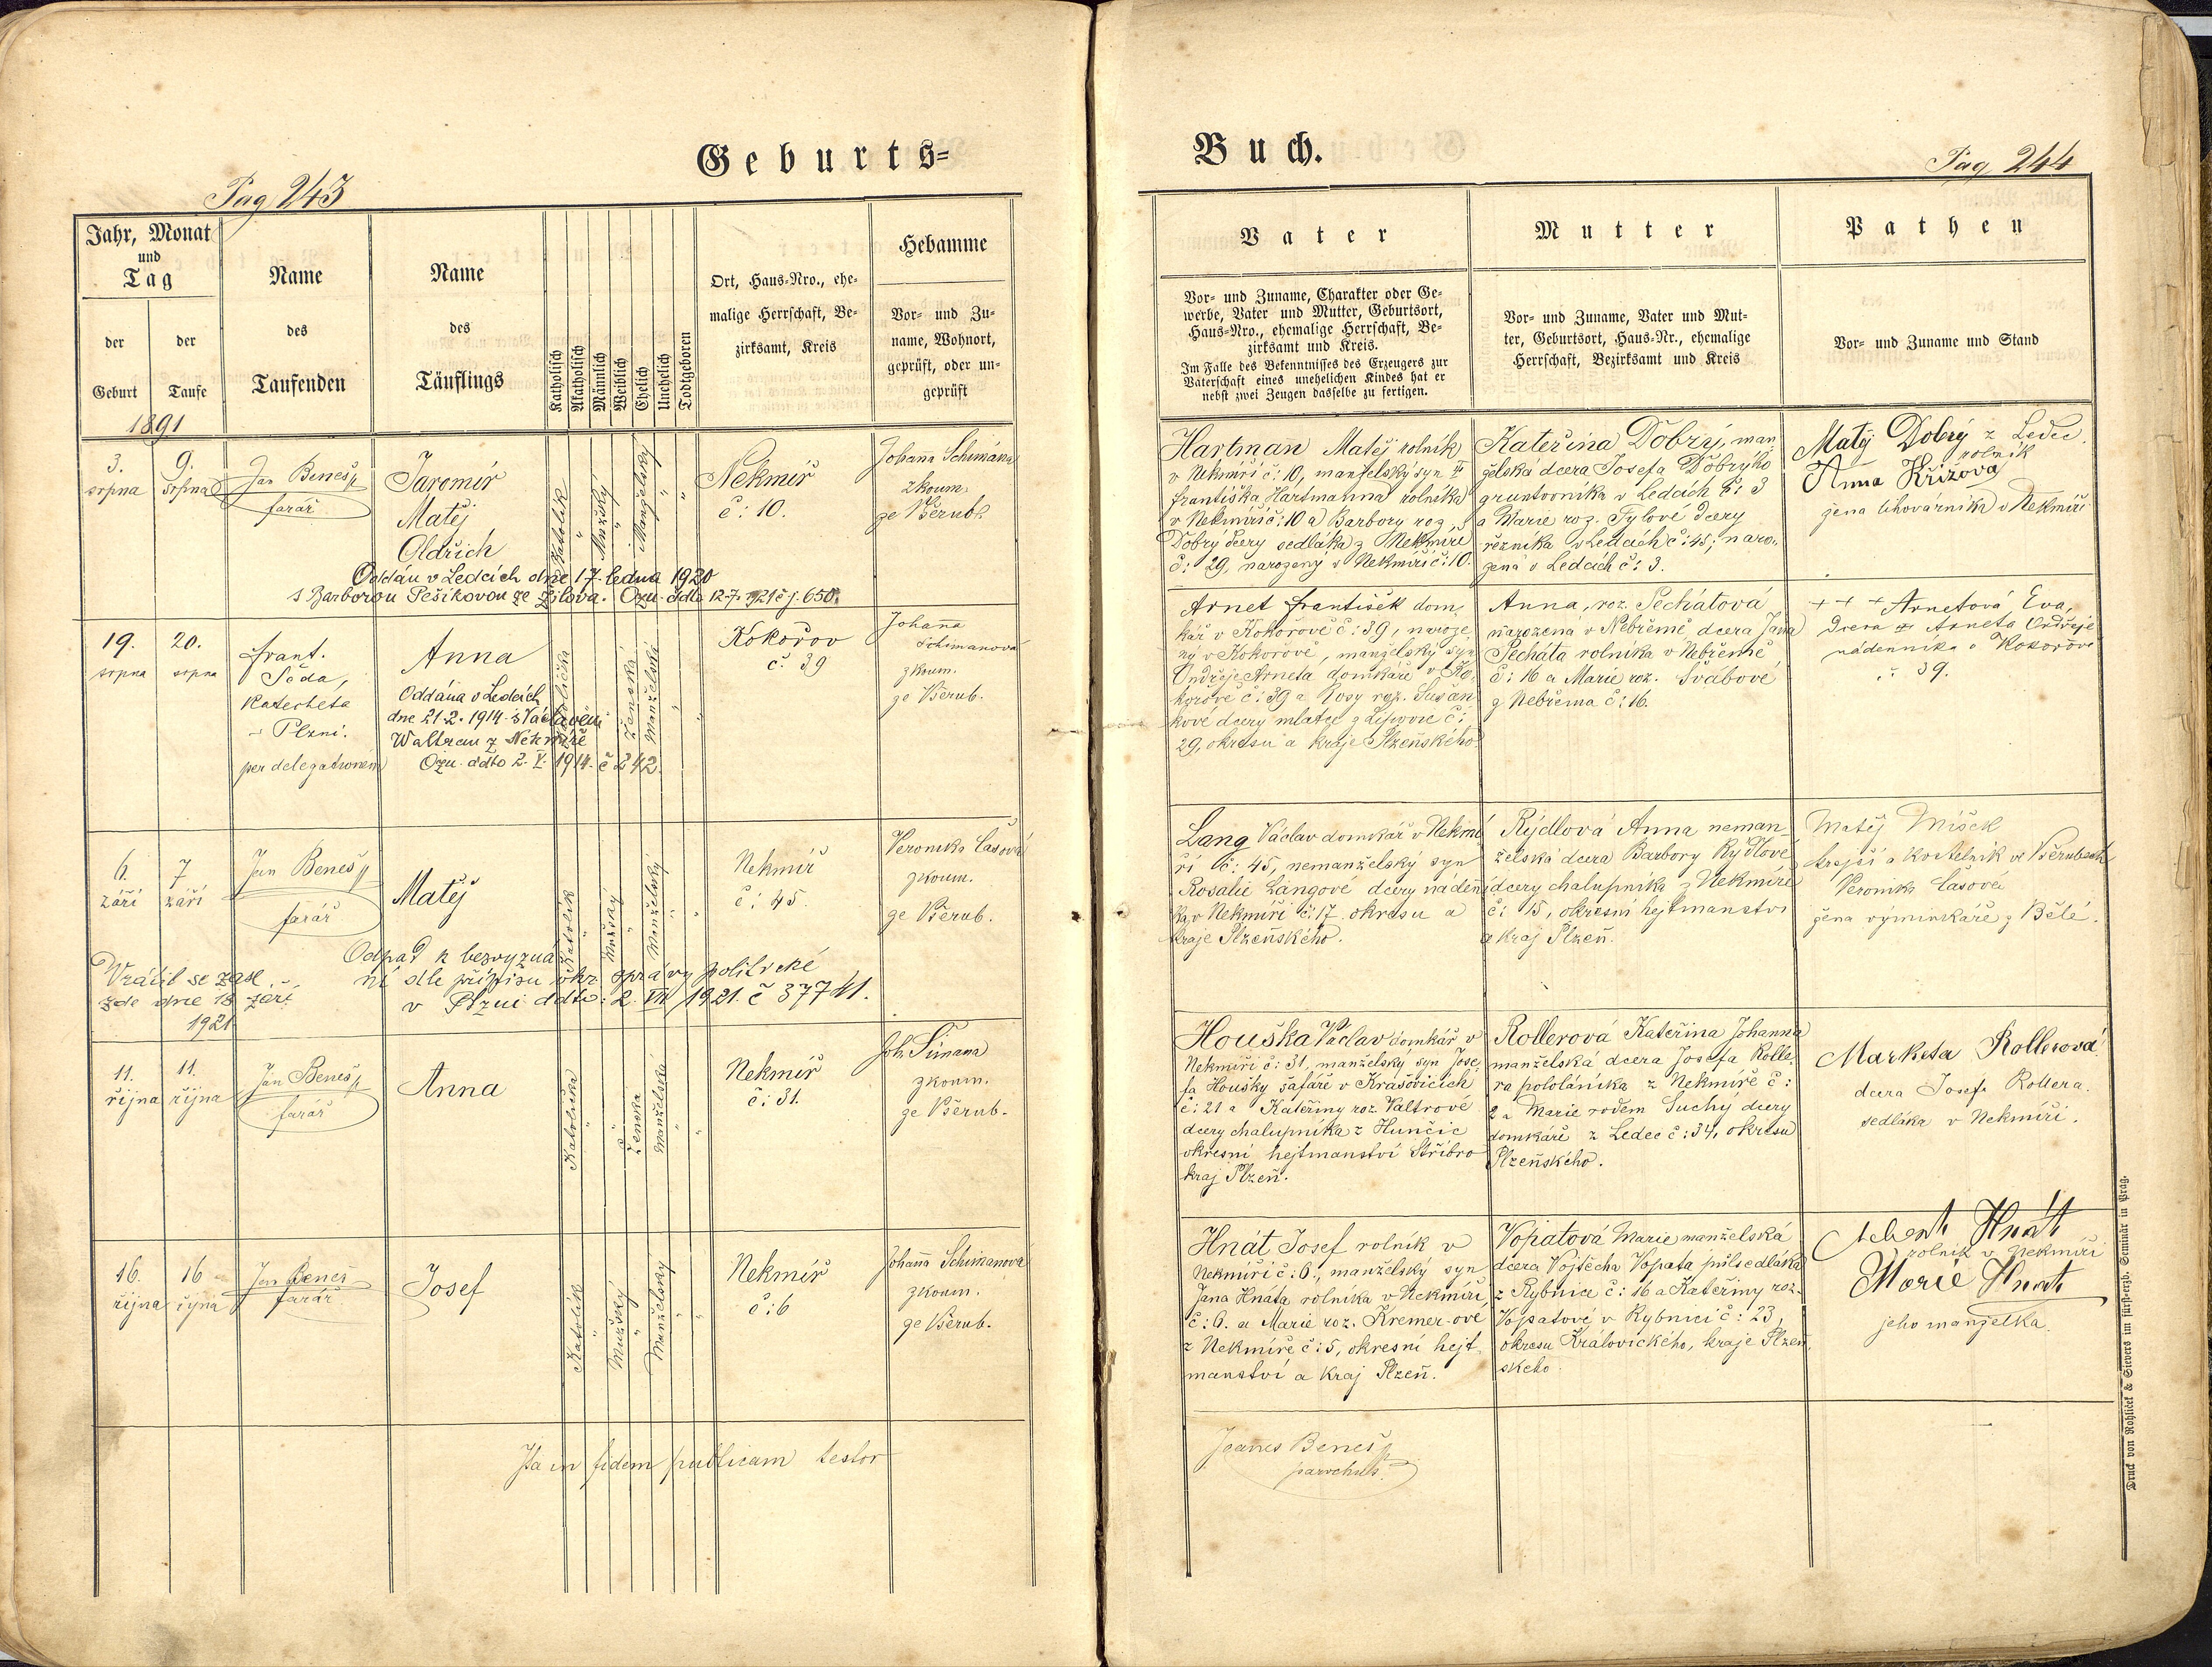 Geburts=
Pag 243
Jahr, Monat
und
Tag
der
Geburt
der
Taufe
1891
Name
des
Taufenden
Name
des
Täuflings
Katholisch
Akatholisch
Männlich
Weiblich
Ehelich
Unehelich
Todtgeboren
Ort, Haus-Nro., ehe-
malige Herrschaft, Be-
zirksamt, Kreis
Hebamme
Vor- und Zu-
name, Wohnort,
geprüft, oder un-
geprüft
3.
srpna
9.
srpna
Jan Beneš
farář
Jaromír
Matěj
Oldřich
Katolík
Mužský
Manželský
Nekmíř
č: 10.
Johana Schimána
zkoum.
ze Všerub
Oddán v Ledcích dne 17. ledna 1920
s Barborou Pešíkovou ze Žilova. Ozn. ddto 12.7. 1921 čj. 650.
19.
srpna
20.
srpna
frant.
Šeda,
Katecheta
v Plzni.
per delegationem
Anna
Oddána v Ledcích
dne 21.2. 1914 s Václavem
Waltrem z Nekmíře
Ozn. ddto 2. V. 1914. č 242.
Katolička
Ženská
Manželská
Kokořov
č. 39
Johana
Schimanova
zkoum.
ze Všerub.
6.
září
7
září
Jan Beneš
farář
Matěj
Katolík
Mužský
Manželský
Nekmíř
č: 45.
Veronika Čašová
zkoum.
ze Všerub.
Odpad k bezvyzná
ní dle přípisu okr. správy politické
v Plzni ddto: 2. VIII 1921. č 37741.
Vrátil se zase
zde dne 18 září
1921
11.
října
11.
října
Jan Beneš
farář
Anna
Katolička
Ženská
Manželská
Nekmíř
č: 31.
Joh. Šimana
zkoum.
ze Všerub.
16.
října
16
října
Jan Beneš
farář
Josef
Katolík
Mužský
Manželský
Nekmíř
č: 6
Johana Schimanova
zkoum.
ze Všerub.
Ita in fidem publicam testor
Buch.
Pag 244
Vater
Vor- und Zuname, Charakter oder Ge-
werbe, Vater und Mutter, Geburtsort,
Haus-Nro., ehemalige Herrschaft, Be-
zirksamt und Kreis.
Im Falle des Bekenntnisses des Erzeugers zur
Vaterschaft eines unehelichen Kindes hat er
nebst zwei Zeugen dasselbe zu fertigen.
Mutter
Vor- und Zuname, Vater und Mut-
ter, Geburtsort, Haus-Nr., ehemalige
Herrschaft, Bezirksamt und Kreis
Pathen
Vor- und Zuname und Stand
Hartman Matěj rolník
v Nekmíři č: 10, manželský syn
františka Hartmanna rolníka
v Nekmíři č: 10 a Barbory roz.
Dobrý dcery sedláka z Nekmíře
č: 29, narozený v Nekmíři č: 10.
Kateřina Dobrý, man
želská dcera Josefa Dobrýho
gruntovníka v Ledcích č: 3
a Marie roz. Tylové dcery
řezníka v Ledcích č: 45; naro-
zená v Ledcích č: 3.
Matěj Dobrý z Ledec
rolník
Anna Křížova
žena lihovárníka v Nekmíři
Arnet František dom
kář v Kokořově č: 39, naroze
ný v Kokořově, manželský syn
Ondřeje Arneta domkáře v Ko
kořově č: 39 a Rosy roz. Susan
kové dcery mlatce z Lipovic č:
29, okresu a kraje Plzeňského.
Anna, roz. Pechátová
narozená v Nebřemě, dcera Jana
Pecháta rolníka v Nebřemě
č: 16 a Marie roz. Švábové
z Nebřema č: 16.
+ + + Arnetová Eva,
dcera Arneta Ondřeje
nádenníka v Kokořově
č. 39.
Lang Václav domkář v Nekmí
ři č: 45, nemanželský syn
Rosalie Langové dcery nádení
ka v Nekmíři č: 17. okresu a
kraje Plzeňského.
Rýdlová Anna neman-
želská dcera Barbory Rýdlové
dcery chalupníka z Nekmíře
č: 15, okresní hejtmanství
a kraj Plzeň.
Matěj Míšek
krejčí a kostelník ve Všerubech
Veronika Čašová
žena výminkáře z Bělé.
Houška Václav domkář v
Nekmíři č: 31, manželský syn Jose
fa Houšky šafáře v Krašovicích
č: 21 a Kateřiny roz. Valtrové
dcery chalupníka z Hunčic
okresní hejtmanství Stříbro
kraj Plzeň.
Rollerová Kateřina Johanna
manželská dcera Josefa Rolle
ra pololáníka z Nekmíře č:
2 a Marie rodem Suchý dcery
domkáře z Ledec č: 34, okresu
Plzeňského.
Marketa Rollerová
dcera Josefa Rollera
sedláka v Nekmíři.
Hnát Josef rolník v
Nekmíři č: 6., manželský syn
Jana Hnáta rolníka v Nekmíři
č: 6. a Marie roz. Kremer-ové
z Nekmíře č: 5, okresní hejt
manství a kraj Plzeň.
Vopatová Marie manželská
dcera Vojtěcha Vopata půlsedláka
z Rybnice č: 16 a Kateřiny roz.
Vopatové v Rybnici č: 23,
okresu Kralovického, kraje Plzeň
ského.
Hnát
rolník v Nekmíři
Marie Hnat
jeho manželka
Joannes Beneš
parochus.
Druck von Rohlíček & Sievers im fürst-erzb. Seminär in Prag.